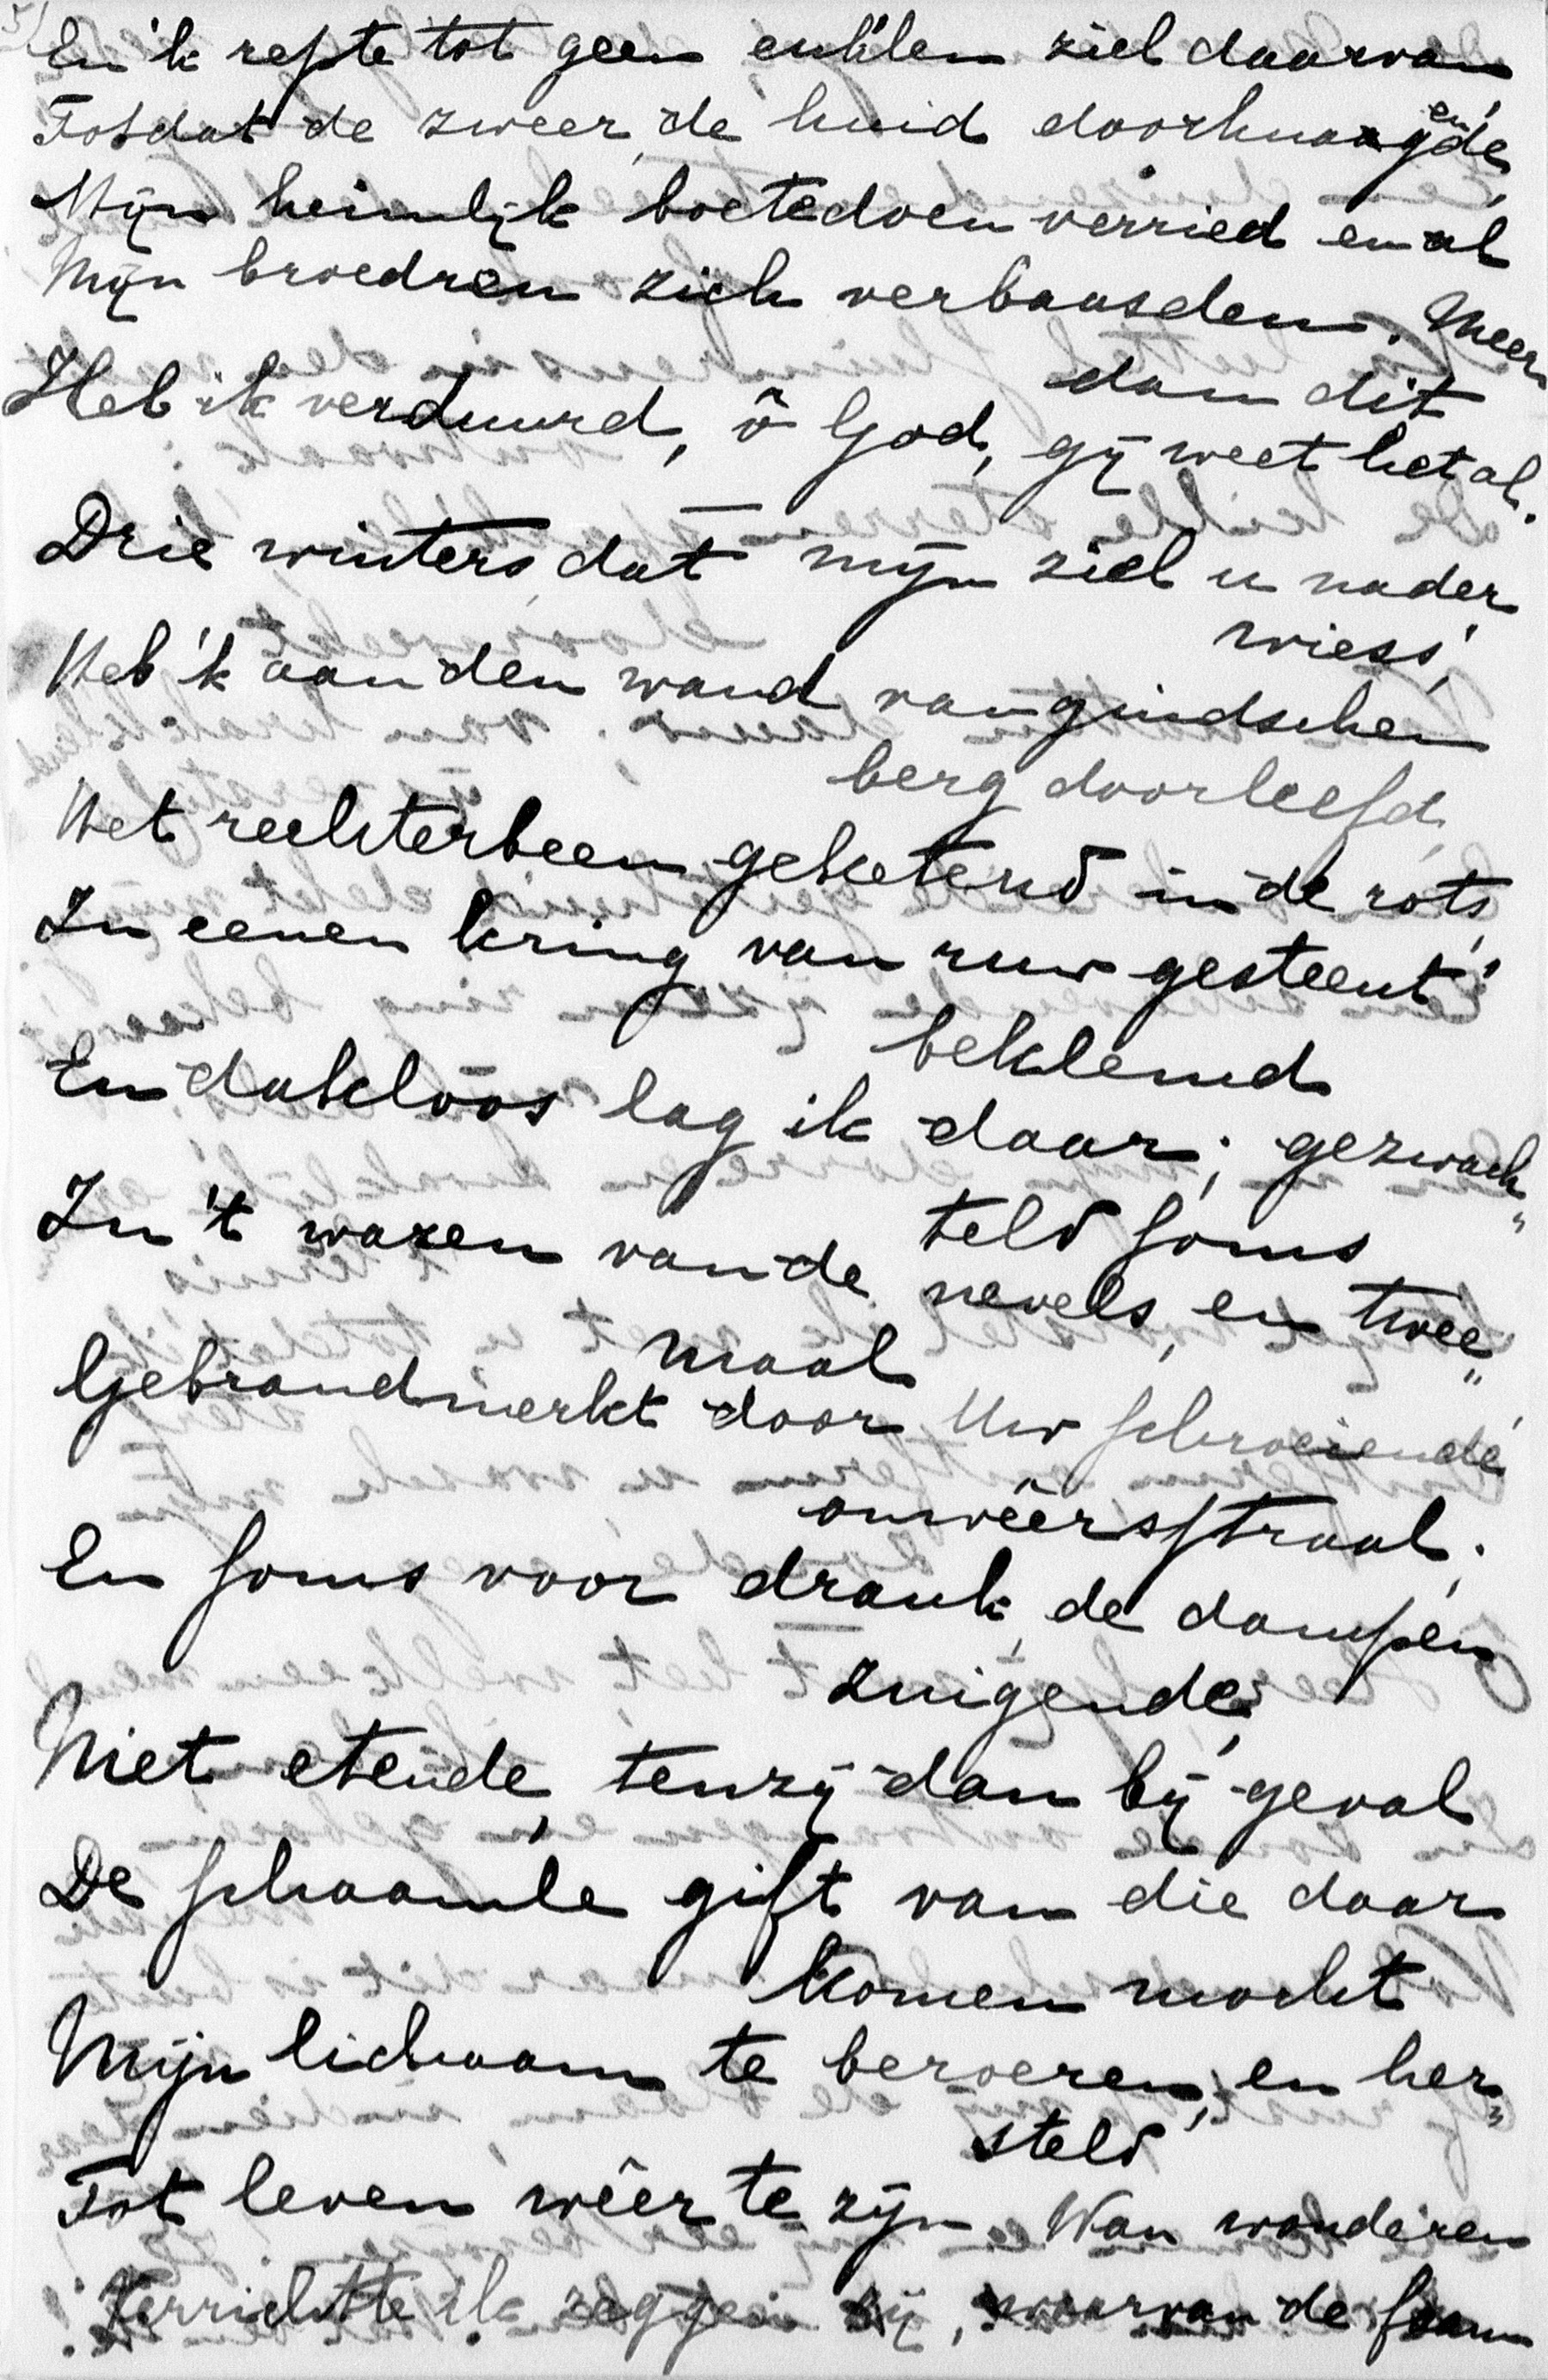 5)
En 'k repte tot geen enk'len ziel daarvan
Totdat de zweer, de huid doorknaagde, en
Mijn heimlijk boetedoen verried en al
Mijn broedren zich verbaasden. Meer
dan dit
Heb ik verduurd, ô God, gij weet het al.
Drie winters, dat mijn ziel u nader
wiess',
Heb 'k aan den wand van gindschen
berg doorleefd,
Het rechterbeen geketend in de rots,
In eenen kring van ruw gesteent'
beklemd
En dakloos lag ik daar; gezwach„
teld soms
In 't wazen van de nevels, en twee„
maal
Gebrandmerkt door Uw schroeiende
onwêersstraal;
En soms voor drank, de dampen
zuigende,
Niet etende, tenzij dan bij geval
De schaamle gift van die daar
komen mocht
Mijn lichaam te beroeren, en her„
steld
Tot leven wêer te zijn. Wan wonderen
Verrichtte ik zeggen zij, waarvan de faam